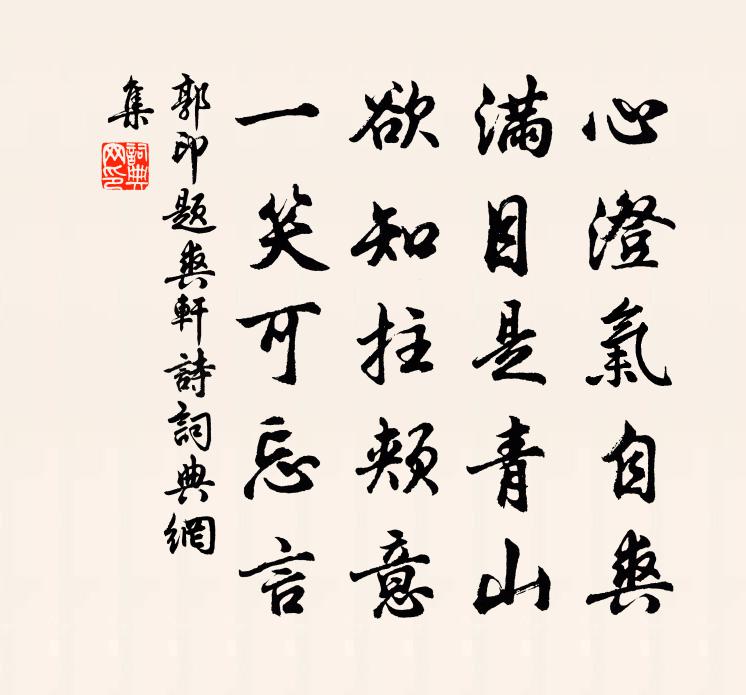 心澄氣自爽
滿目是青山
欲知拄頰意
一笑可忘言
郭印題爽軒詩詞典網
集
詞典
网印